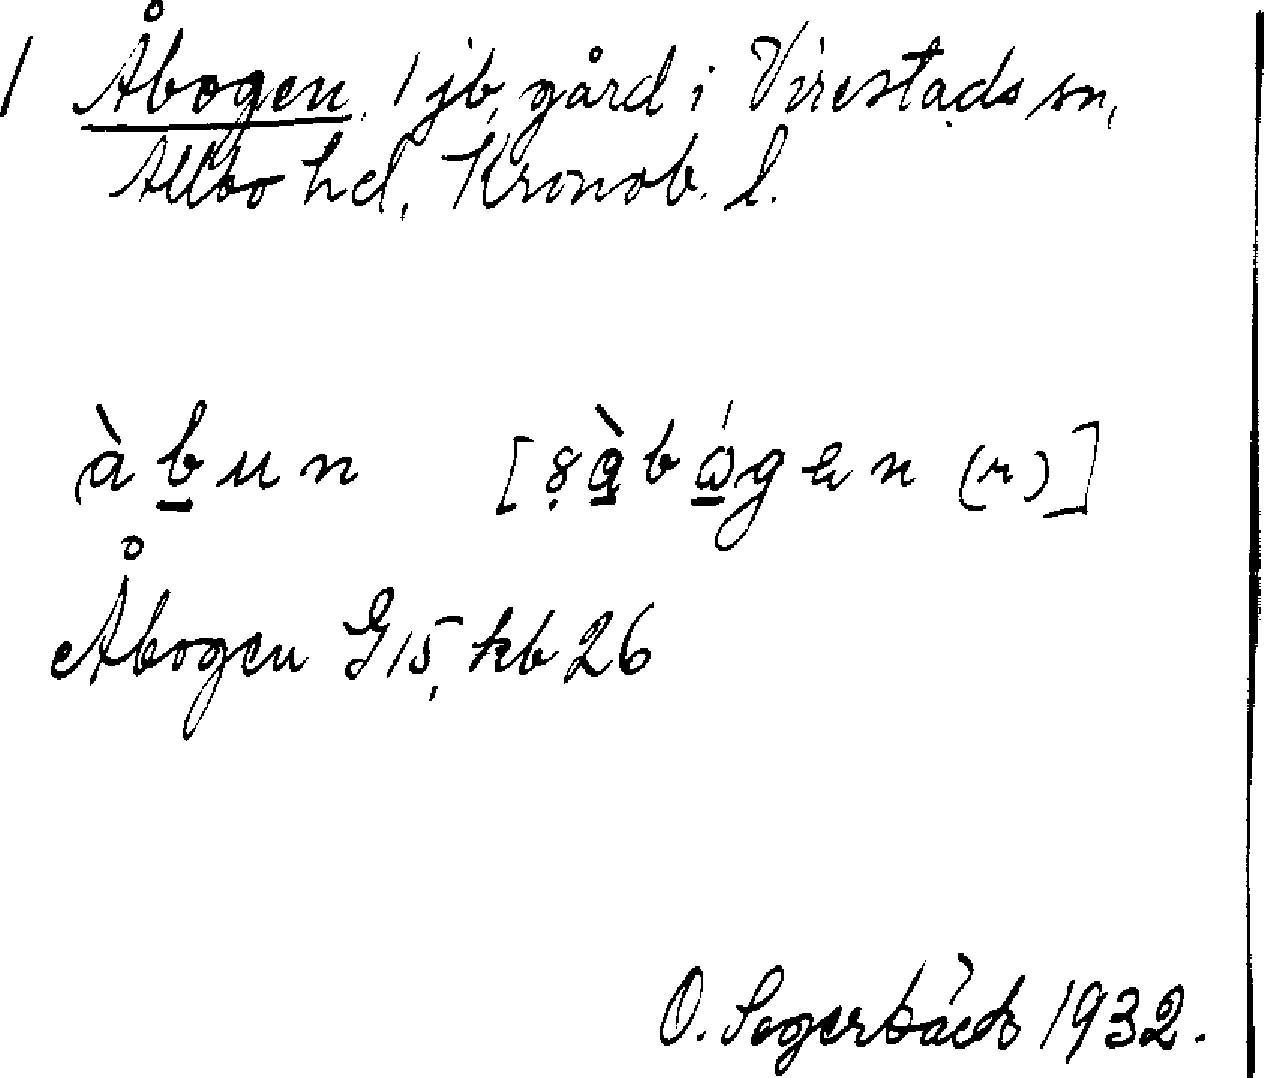 1 Åbogen, 1 jb, gård i Virestads sn,
Allbo hd, Kronob. l.
àbun [åbógen (r)]
Åbogen G15, kb 26
O. Segerbäck 1932.